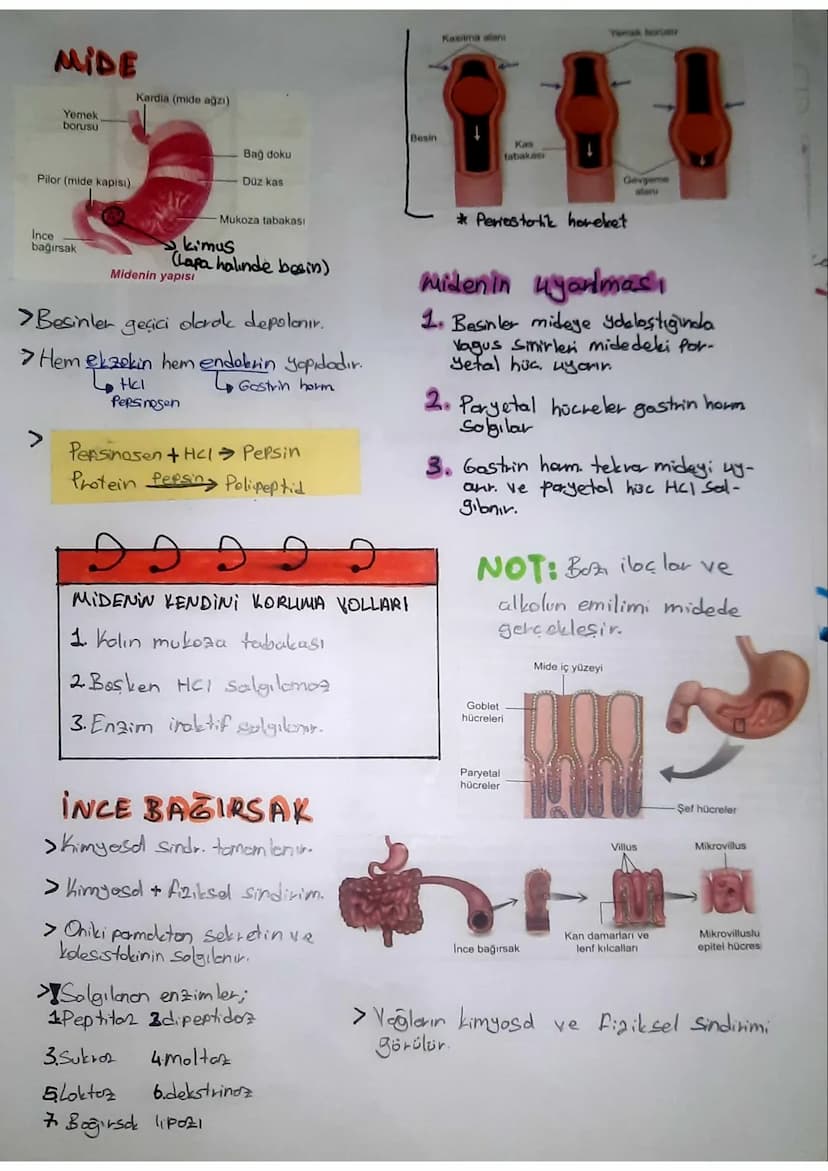 MİDE
Kardia (mide ağzı)
Yemek
borusu
Bağ doku
Pilor (mide kapısı)
Düz kas
Mukoza tabakası
İnce
bağırsak
kimus
(Lapa halinde besin)
Midenin yapısı
>Besinler geçici olarak depolanır.
>Hem ekzokin hem endokrin yapıdadır.
HCl
Pepsinojen
Gastrin horm
>
Pepsinojen + HCl → Pepsin
Protein Pepsin → Polipeptid
MİDENİN KENDİNİ KORUMA YOLLARI
1. Kalın mukoza tabakası
2. Boşken HCl salgılamaz
3. Enzim inaktif salgılanır.
İNCE BAĞIRSAK
>Kimyasal sindr. tamamlanır.
> Kimyasal + fiziksel sindirim.
> Oniki parmaktan sekretin ve
kolesistokinin salgılanır.
>! Salgılanan enzimler;
1.Peptitaz 2.dipeptidaz
3.Sukraz 4.maltaz
5.Laktaz 6.dekstrinaz
7. Bağırsak lipazı
Kasılma alanı
Yemek borusu
Besin
Kas
tabakası
Gevşeme
alanı
* Peristatik hareket
Midenin uyarılması
1. Besinler mideye yaklaştığında
vagus sinirleri midedeki par-
yetal hüc. uyarır.
2. Paryetal hücreler gastrin horm
salgılar
3. Gastrin horm. tekrar mideyi uy-
arır. ve paryetal hüc HCl sal-
gılanır.
NOT: Bazı ilaçlar ve
alkolun emilimi midede
gerçekleşir.
Mide iç yüzeyi
Goblet
hücreleri
Paryetal
hücreler
Şef hücreler
Villus
Mikrovillus
İnce bağırsak
Kan damarları ve
lenf kılcalları
Mikrovilluslu
epitel hücres
> Yağların kimyasal ve fiziksel sindirimi
görülür.